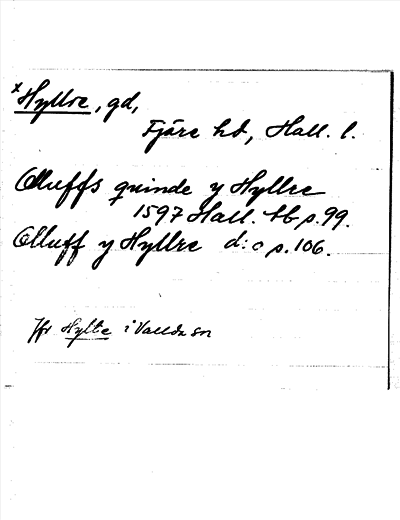 *Hyllre, gd,
Fjäre hd, Hall. l.
Olluffs quinde y Hyllre
1597 Hall. tb p. 99.
Olluff y Hyllre d:o p. 106.
Jfr Hylte i Vallda sn